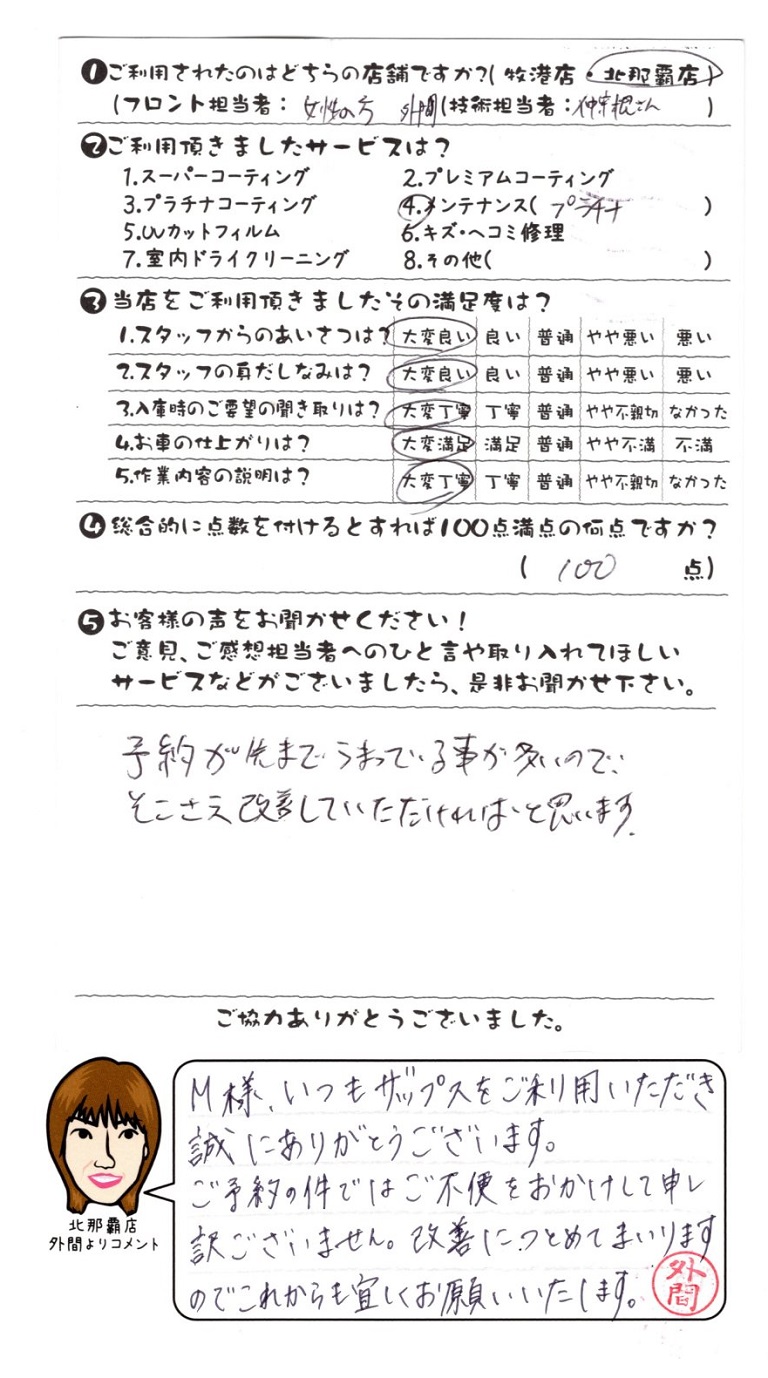 ❶ご利用されたのはどちらの店舗ですか?(牧港店・北那覇店)
(フロント担当者:女性の方 外間(技術担当者:仲宗根さん)
❷ご利用頂きましたサービスは?
1.スーパーコーティング 2.プレミアムコーティング
3.プラチナコーティング 4.メンテナンス(プラチナ)
5.UVカットフィルム 6.キズ・ヘコミ修理
7.室内ドライクリーニング 8.その他( )
❸当店をご利用頂きましたその満足度は?
1.スタッフからのあいさつは? 大変良い 良い 普通 やや悪い 悪い
2.スタッフの身だしなみは? 大変良い 良い 普通 やや悪い 悪い
3.入庫時のご要望の聞き取りは? 大変丁寧 丁寧 普通 やや不親切 なかった
4.お車の仕上がりは? 大変満足 満足 普通 やや不満 不満
5.作業内容の説明は? 大変丁寧 丁寧 普通 やや不親切 なかった
❹総合的に点数を付けるとすれば100点満点の何点ですか?
(100 点)
❺お客様の声をお聞かせください!
ご意見、ご感想担当者へのひと言や取り入れてほしい
サービスなどがございましたら、是非お聞かせ下さい。
予約が先までうまっている事が多いので、
そこさえ改善していただければと思います。
ご協力ありがとうございました。
M様、いつもザップスをご利用いただき
誠にありがとうございます。
ご予約の件ではご不便をおかけして申し
訳ございません。改善につとめてまいります
のでこれからも宜しくお願いいたします。
外間
北那覇店
外間よりコメント